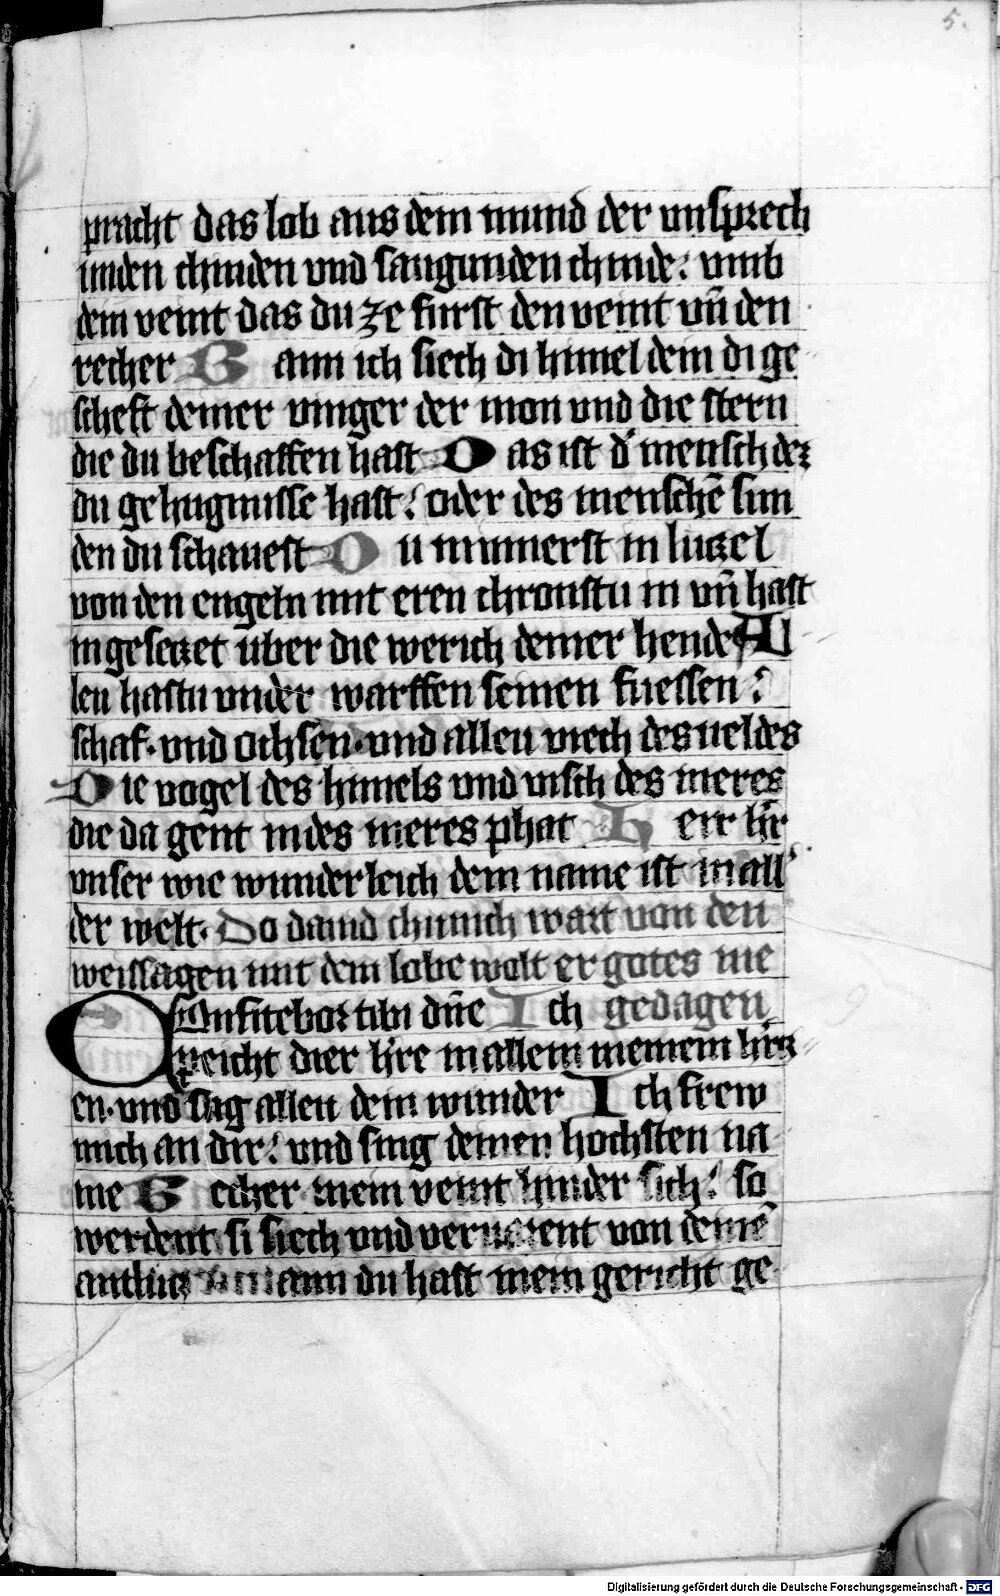 5.
pracht das lob aus dem mund der unsprech
unden chinden vnd saugunden chinde: vmb
dein veint das du ze fürst den veint vñ den
recher Wann ich siech di himel dein di ge
scheft deiner vinger der mon vnd die stern
die du beschaffen hast Was ist d' mensch dez
du gehugnisse hast: oder des menschē sun
den du schauest Du minnerst in luczel
von den engeln mit eren chronstu in vñ hast
in gesetzet uber die werich deiner hende Al
leu hastu under warffen seinen fuessen:
schaf. vnd ochsen. vnd alleu viech des veldes
Die vogel des himels vnd visch des meres
die da gent in des meres phat Herr h'r
vnser wie wunderleich dein name ist in all'
der welt. Do dauid chunich wart von den
weissagen mit dem lobe wolt er gotes nie
Confitebor tibi dñe Ich gedagen
peicht dier h're in allem meinem hercz
en. vnd sag alleu dein wunder Ich frew
mich an dir: vnd sing deinen hochsten na
me Becher mein veint hinder sich: so
werdent si siech vnd ver von deinē
antlucz Wann du hast mein gericht ge
Digitalisierung gefördert durch die Deutsche Forschungsgemeinschaft - DFG